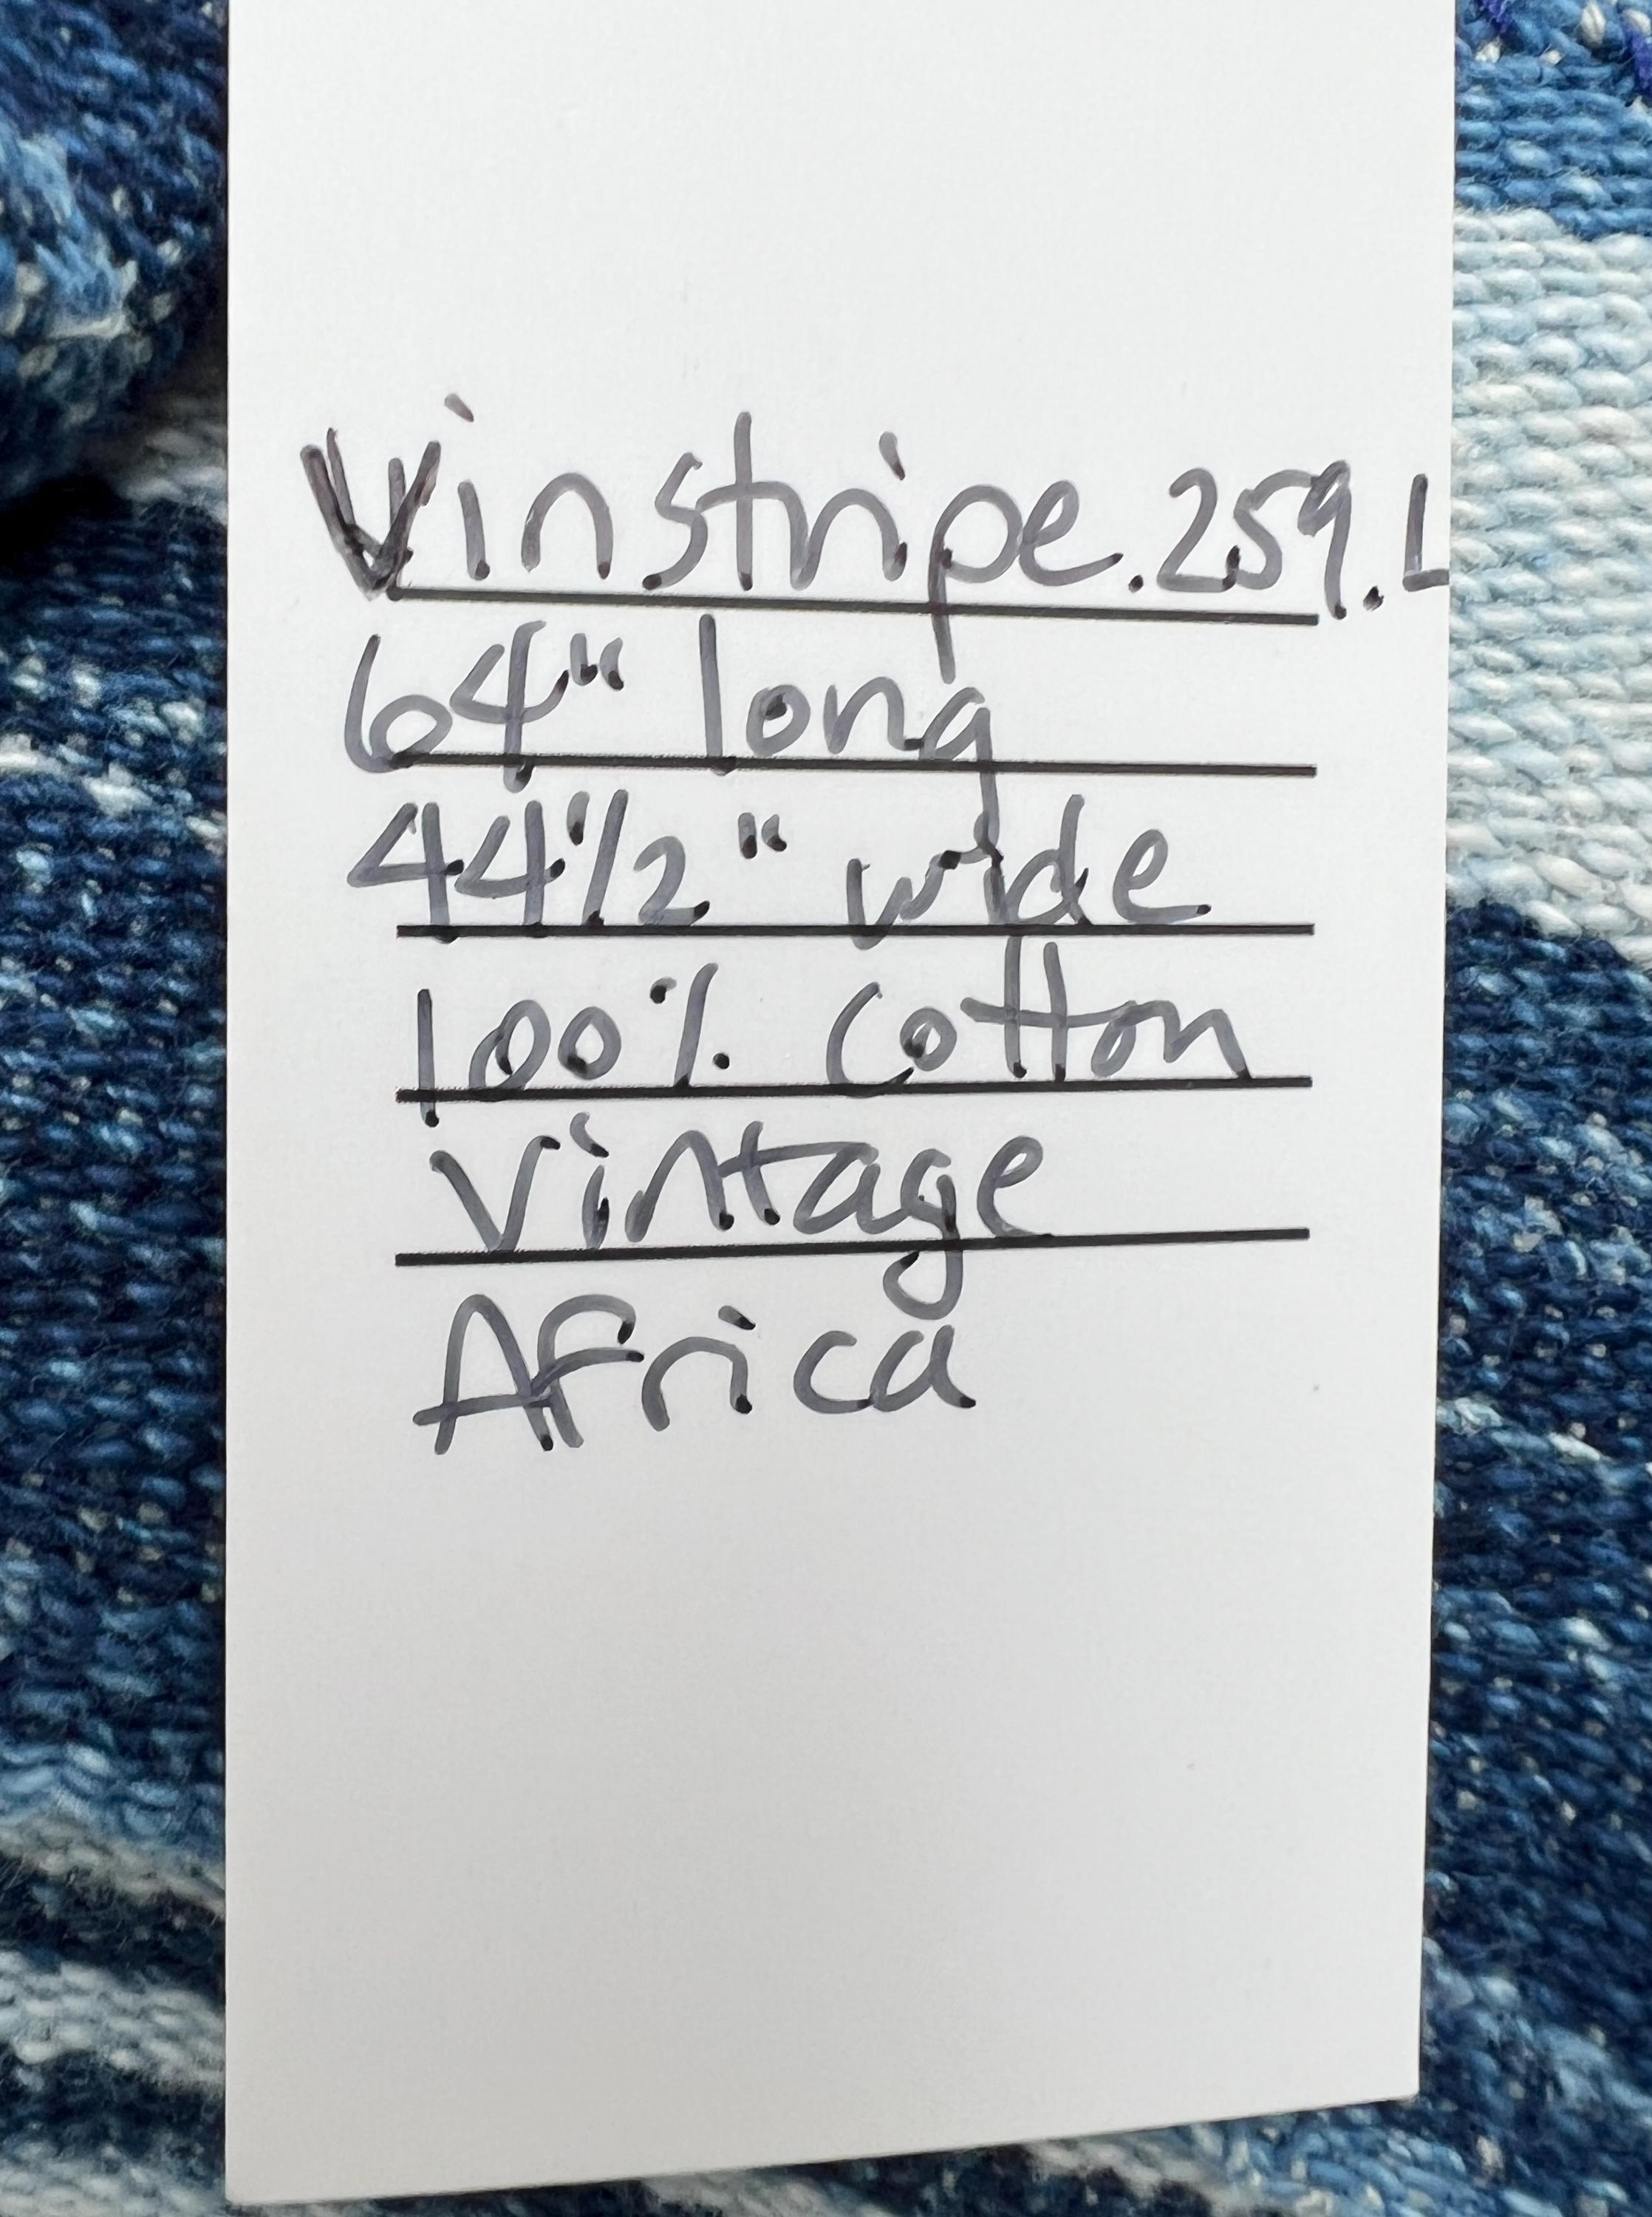 Vinstripe.259.L
64" long
44 1/2" wide
100% Cotton
Vintage
Africa